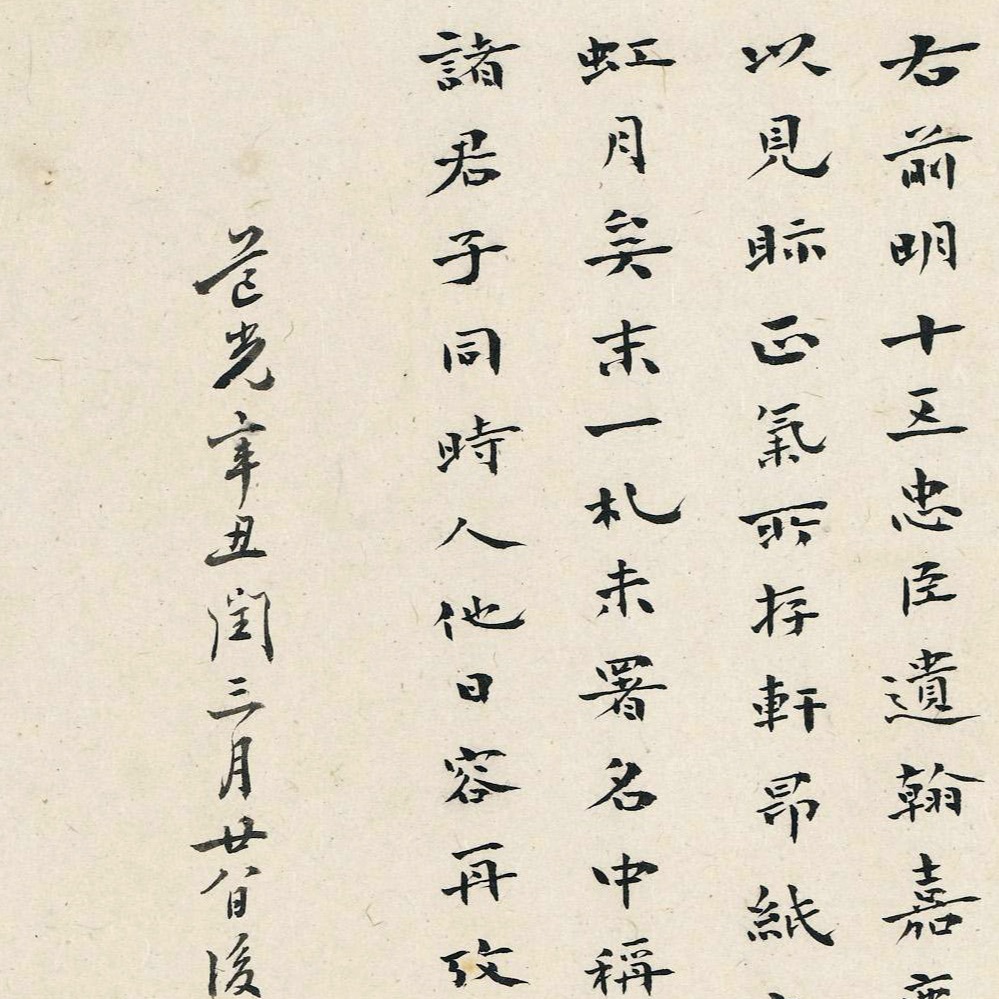 右前明十五忠臣遺翰嘉
以見眎正氣所存軒昂紙
虹月矣末一札未署名中稱
諸君子同時人他日容再攷
道光辛丑閏三月廿八日後